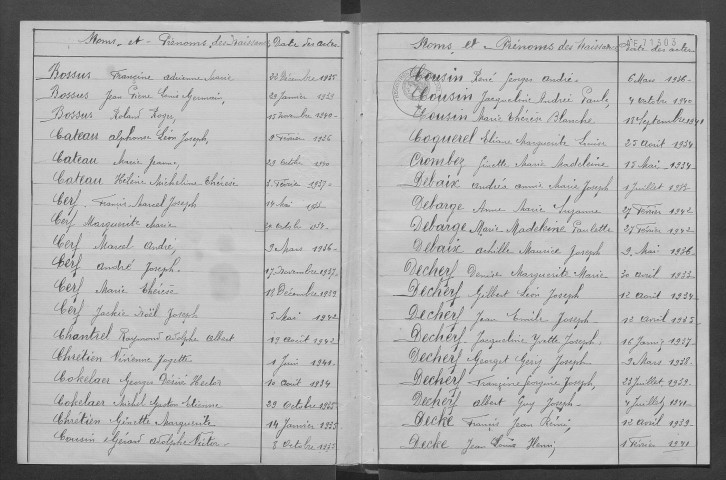 Noms et Prénoms des Naissances Date des actes
Bossus Francine Adrienne Marie 22 Décembre 1935
Bossus Jean Pierre Louis Germain, 29 Janvier 1939
Bossus Roland Roger, 15 Novembre 1940
Cateau Alphonse Léon Joseph, 9 Février 1936
Cateau Marie Jeanne, 29 Octobre 1940
Cateau Hélène Micheline Thérèse 3 Février 1937
Cerf Francis Marcel Joseph 14 Mai
Cerf Marguerite Marie 20 Octobre 1934
Cerf Marcel André, 9 Mars 1936
Cerf André Joseph 17 Novembre 1937
Cerf Marie Thérèse 18 Décembre 1939
Cerf Jackie Noël Joseph 5 Mai 1942
Chantiel Raymond Adolphe Albert 19 Août 1942
Chrétien Vivienne Josette 1 Juin 1941
Cokelaer Georges Désiré Hector 10 Août 1934
Cokelaer Michel Gaston Etienne 29 Octobre 1935
Chrétien Ginette Marguerite 14 Janvier 1935
Cousin Gérard Adolphe Victor 8 Octobre 1935
Noms et Prénoms des Naissances Date des actes
5E71303
Cousin René Georges André 6 Mars 1936
Cousin Jacqueline Andrée Paule, 4 Octobre 1940
Cousin Marie Thérèse Blanche 18 Septembre 1941
Coquerel Eliane Marguerite Louise 25 Août 1934
Crombez Ginette Marie Madeleine 15 Mai 1934
Debaix Andréa Annie Marie Joseph 1 Juillet
Debarge Anne Marie Suzanne 27 Février 1942
Debarge Marie Madeleine Paulette 27 Février 1942
Debaix Achille Maurice Joseph 9 Mai 1936
Decherf Denise Marguerite Marie 30 Avril 1933
Decherf Gilbert Léon Joseph 12 Avril 1934
Decherf Jean Emile Joseph 12 Avril 1935
Decherf Jacqueline Yvette Joseph, 16 Janvier 1937
Decherf Georget Gery Joseph 2 Mars 1938
Decherf Francine Georgine Joseph, 23 Juillet 1939
Decherf Albert Guy Joseph 4 Juillet 1941
Decke Francis Jean Rémi, 12 Avril 1939
Decke Jean Louis Henri, 1 Février 1941